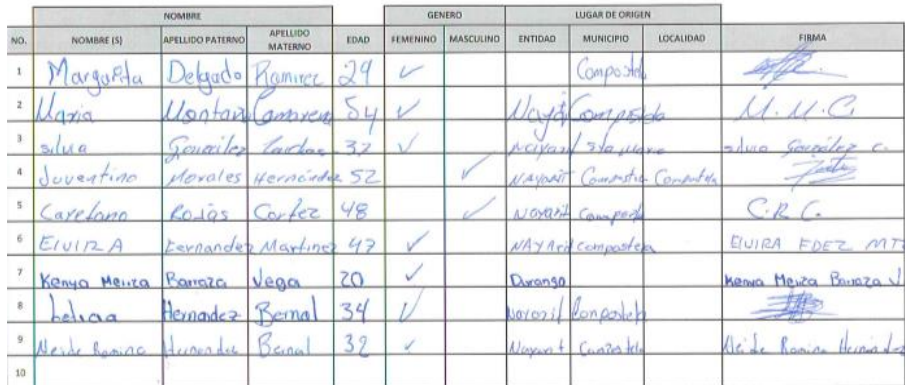 NOMBRE GENERO LUGAR DE ORIGEN
NO. NOMBRE (S) APELLIDO PATERNO APELLIDO MATERNO EDAD FEMENINO MASCULINO ENTIDAD MUNICIPIO LOCALIDAD FIRMA
1 Margarita Delgado Ramirez 29 ✓ Compostel
2 Maria 54 ✓ Compostela M.M.C.
3 silvia González 32 ✓ Nayarit silvia González C.
4 Juventino Morales Hernández 52 ✓ NAYARIT Compostela
5 Rojas Cortez 48 ✓ Nayarit C.R.C.
6 ElVIRA Fernandez Martinez 47 ✓ NAYArit compostela ElVIRA FDEZ MTZ
7 Kenya Barraza Vega 20 ✓ Durango Kenya Barraza V
8 Hernadez Bernal 34 ✓ Nayarit Compostela
9 Neide Romina Hernandez Bernal 32 ✓ Nayarit Neide Romina Hernandez
10